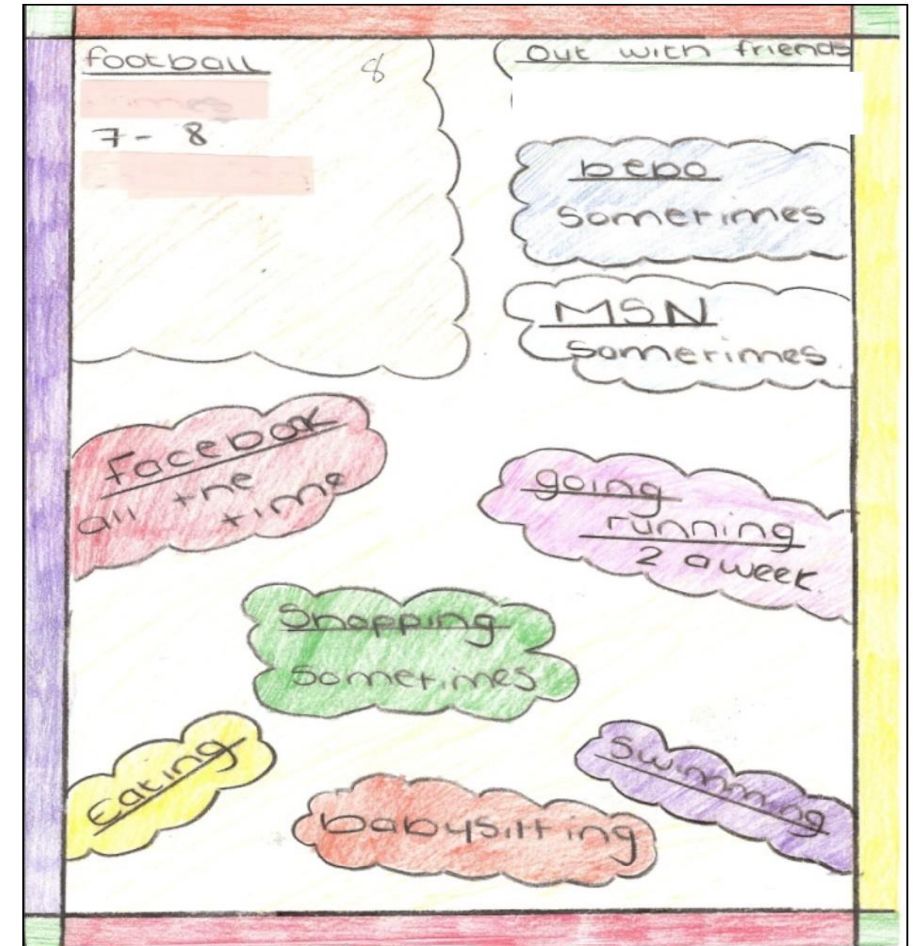 football
8
7 - 8
Out with friends
bebo
Sometimes
MSN
Sometimes
Facebook
all the
time
going
running
2 a week
Shopping
Sometimes
Eating
babysitting
Swimming